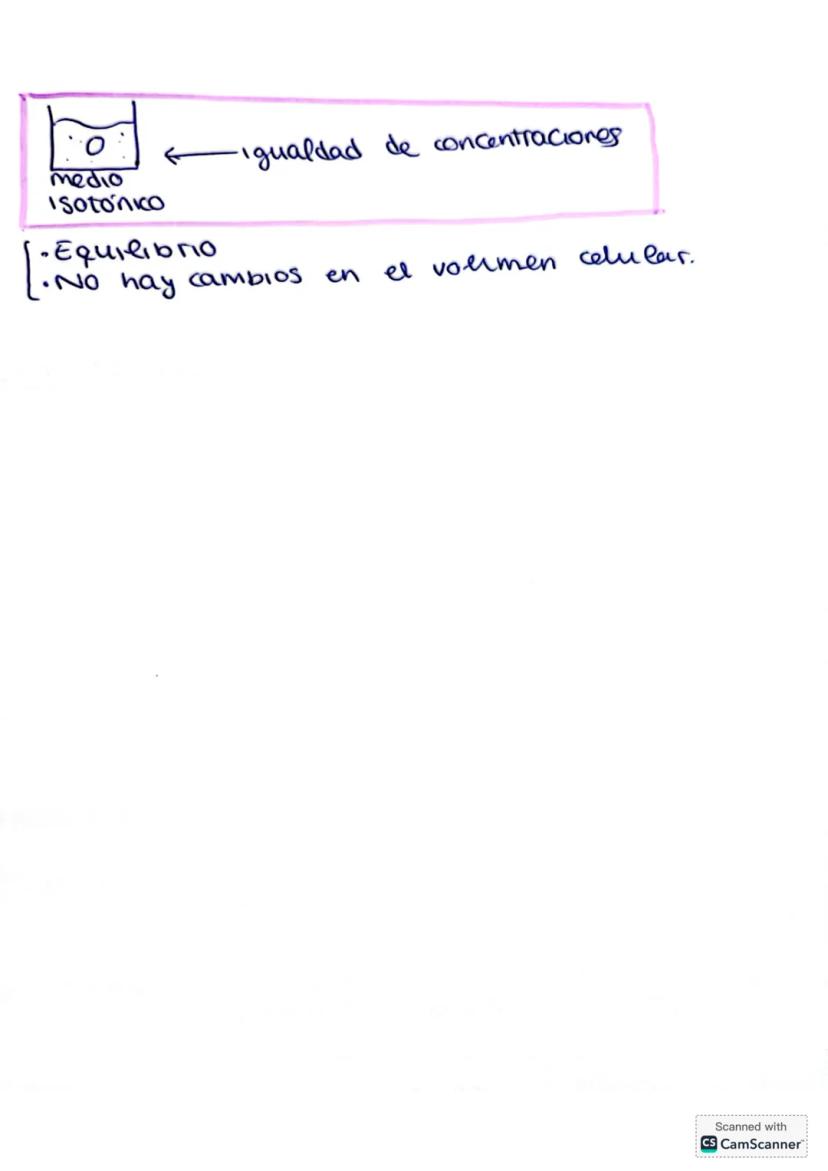 igualdad de concentraciones
medio
isotónico
• Equilibrio
• No hay cambios en el volumen celular.
Scanned with
CS CamScanner